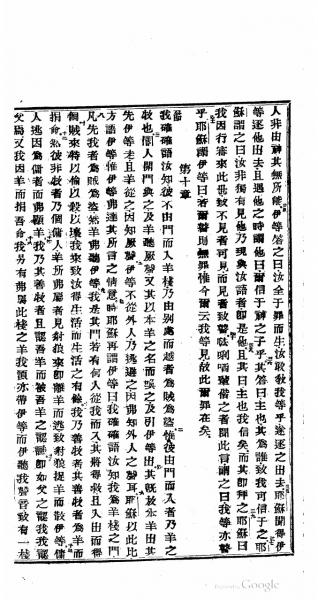 人非由神其無所能伊等答之曰汝全于罪而生汝敢教我等乎遂逐之出去耶穌聞得伊
等逐他出去且遇他之時謂他曰爾信于神之子乎其答曰主也其為誰致我可信于之耶
穌謂之曰汝非獨有見他乃現與汝語者卽是他且其曰主也我信矣而其卽拜之耶穌曰
我因行審來此世致不見者可見而見者致瞽唎輩偕之者聞此言謂之曰我等亦瞽
乎耶穌謂伊等曰若爾瞽則無罪惟今爾云我等見故此爾罪在矣
第十章
我確確語汝知彼不由門而入羊棧乃由別處而越者為賊為盜惟彼由門而入者乃羊之
牧也閽人開門與之及羊聽厥聲又其以本羊之名而呼之及引伊等出其既放本羊出其
先伊等走且羊從之因知厥聲伊等不從外人乃逃避之因弗知外人之聲耳耶穌以此比
方語伊等惟伊等弗達其所言之情意時耶穌再語伊等曰我確確語汝知我為羊棧之門
凡先我者為賊為盜然羊弗聽伊等我是其門若有何人從我而入其將得救且入出而得
個賊來特以偷以殺以壞我來致汝得生活而生活之有餘我乃善牧者其善牧者為羊而
捐命然彼非牧者乃個傭人羊所弗屬者見豺狼來卽離羊而逃致豺狼捉羊而散伊等傭
人逃因為傭者而弗顧羊我乃其善牧者且認吾羊而被吾羊之認識卽如父之認我我
父焉又我因羊而捐吾命我另有弗屬此棧之羊我須亦帶伊等而伊聽我聲音致有一棧
Google